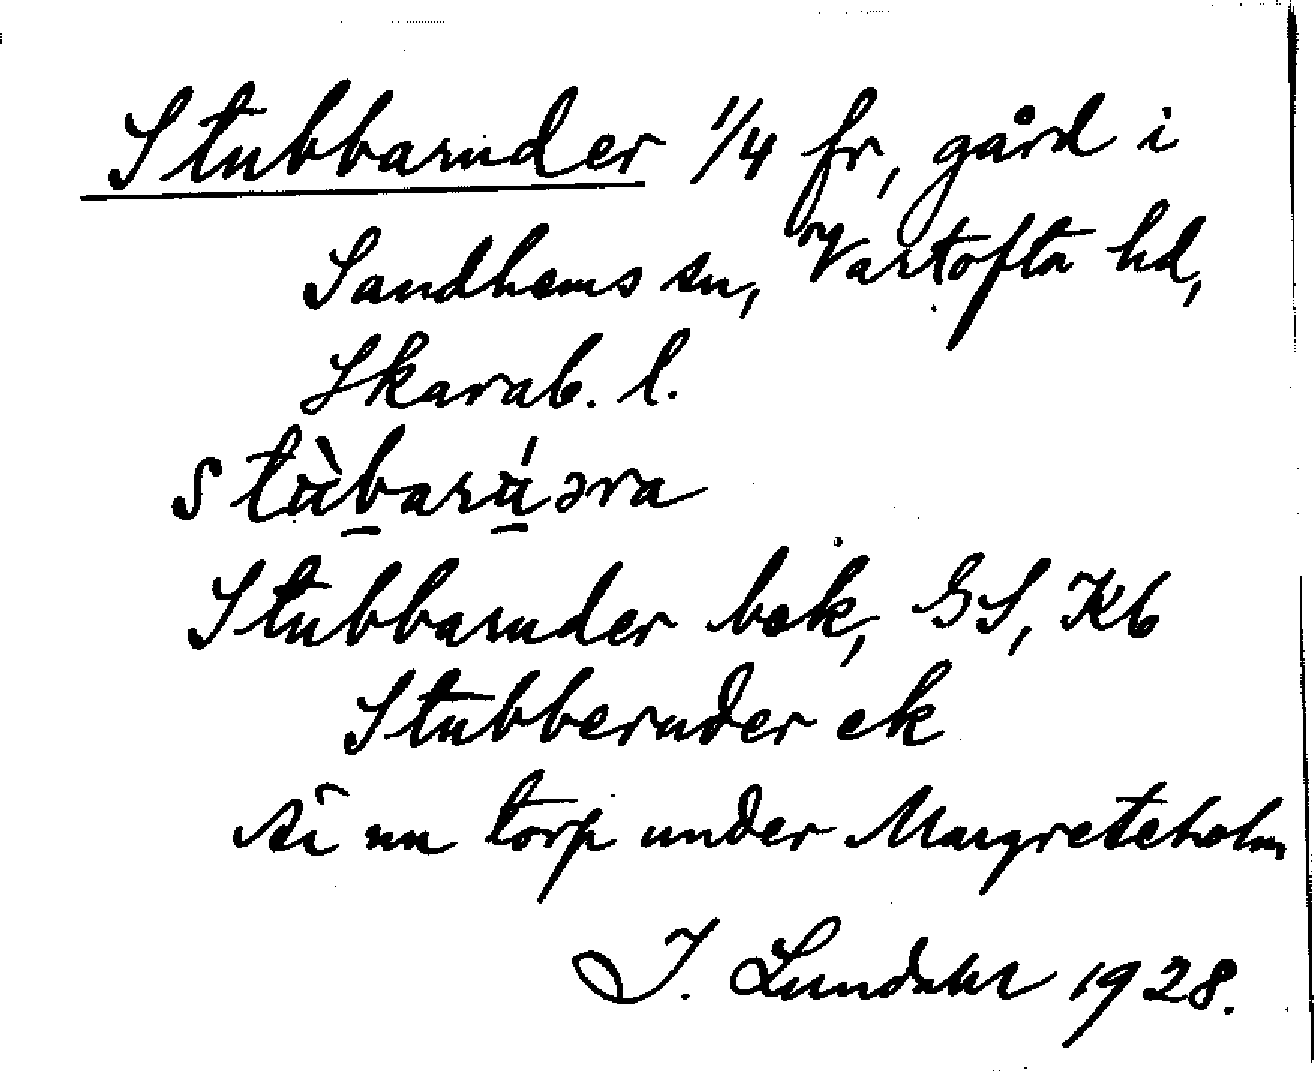 Stubbaruder 1/4 fr, gård i
Sandhems sn, Vartofta hd,
Skarab. l.
stùbarúəra
Stubbaruder bek, GS, Kb
Stubberuder ek
Är nu torp under Margreteholm
I. Lundahl 1928.